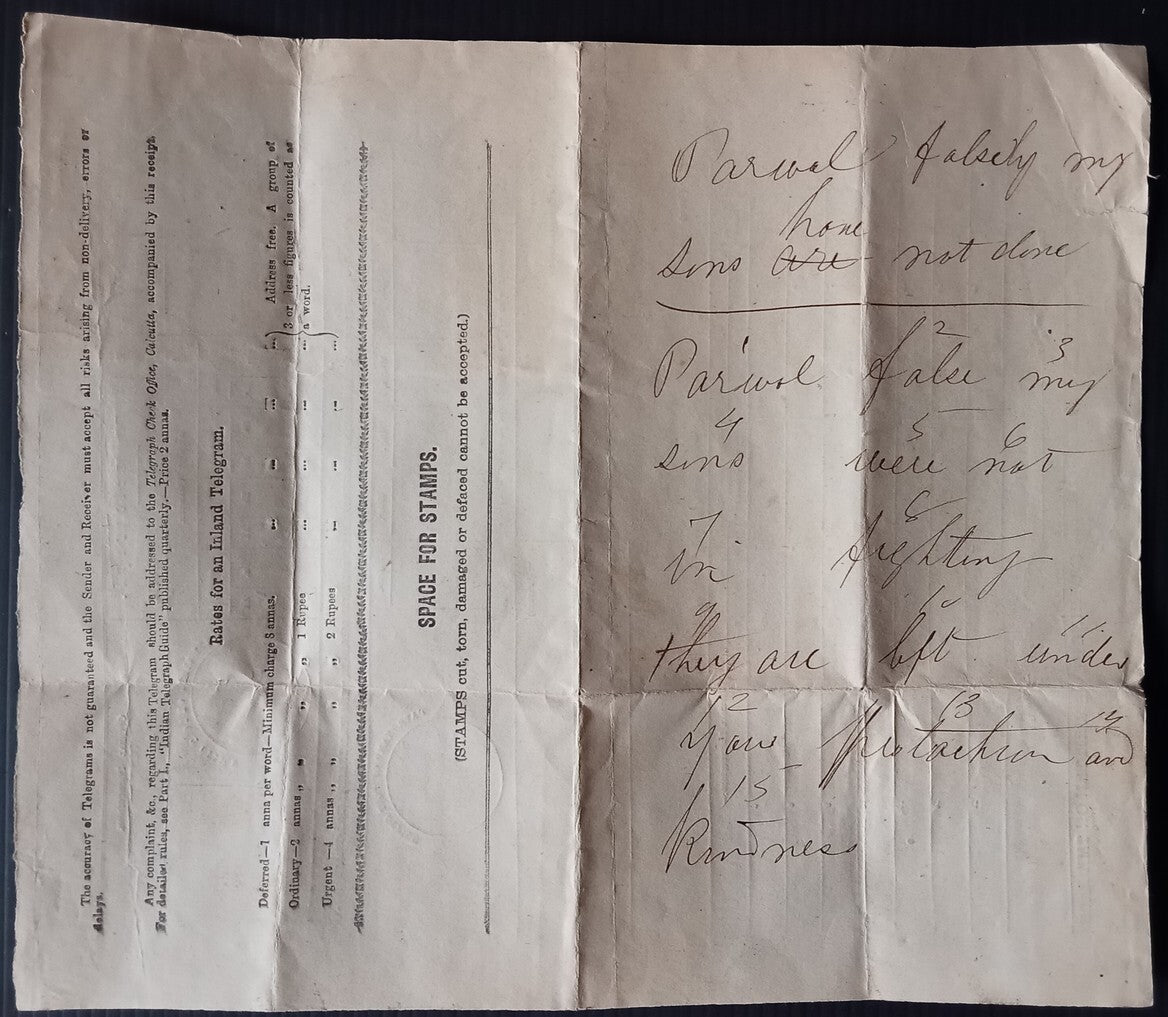 The accuracy of Telegrams is not guaranteed and the Sender and Receiver must accept all risks arising from non-delivery, errors or
delays.
Any complaint, &c., regarding this Telegram should be addressed to the Telegraph Check Office, Calcutta, accompanied by this receipt.
For detailed rules, see Part I., "Indian Telegraph Guide" published quarterly.—Price 2 annas.
Rates for an Inland Telegram.
Deferred—1 anna per word—Minimum charge 8 annas. ... ... ... ...
Ordinary—2 annas „ „ „ „ 1 Rupee ... ... ... ...
Urgent —4 annas „ „ „ „ 2 Rupees ... ... ... ...
Address free. A group of
3 or less figures is counted as
a word.
SPACE FOR STAMPS.
(STAMPS cut, torn, damaged or defaced cannot be accepted.)
Parwal falsily my
have
sons are not done
1 2 3
Parwal false my
4 5 6
sons were not
7 8
in fighting
9 10 11
they are left under
12 13 14
your and
15
kindness